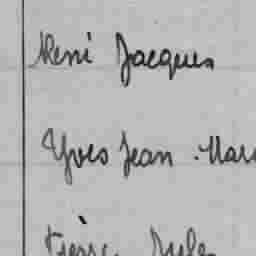 René Jacques
Yves Jean Mar
Pierre Jules